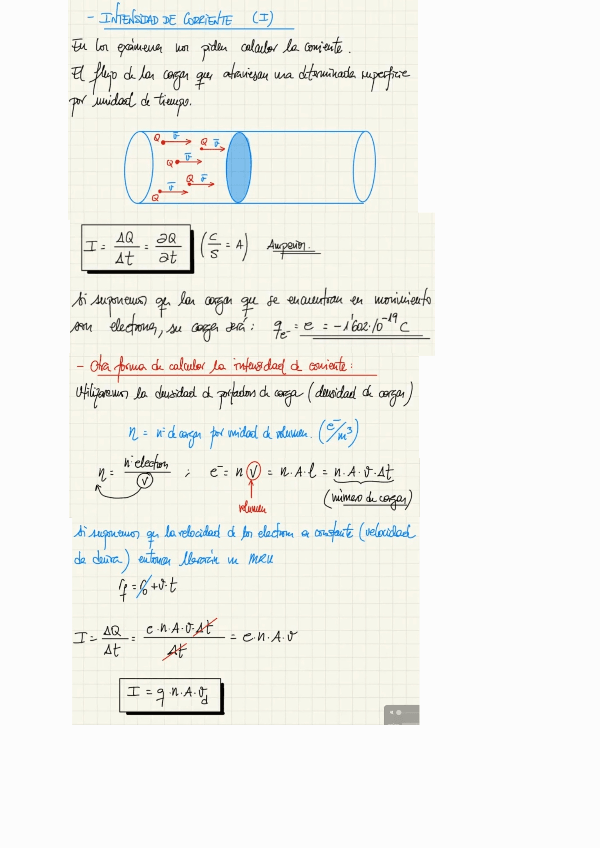 - INTENSIDAD DE CORRIENTE (I)
En los exámenes nos piden calcular la corriente.
El flujo de las cargas que atraviesan una determinada superficie
por unidad de tiempo.
Q v⃗ Q v⃗
Q v⃗
Q v⃗ Q v⃗
I = ΔQ/Δt = ∂Q/∂t (C/s = A) Amperios.
Si suponemos que las cargas que se encuentran en movimiento
son electrones, su carga será: q_e⁻ = e = -1'602·10⁻¹⁹ C
- Otra forma de calcular la intensidad de corriente:
Utilizaremos la densidad de portadores de carga (densidad de cargas)
n = nº de cargas por unidad de volumen. (e⁻/m³)
n = nº electron/V ; e⁻ = n V = n·A·l = n·A·v·Δt
volumen
(número de cargas)
Si suponemos que la velocidad de los electrones es constante (velocidad
de deriva) entonces llevarán un MRU
r_f = r_0 + v·t
I = ΔQ/Δt = e·n·A·v·Δt/Δt = e·n·A·v
I = q·n·A·v_d